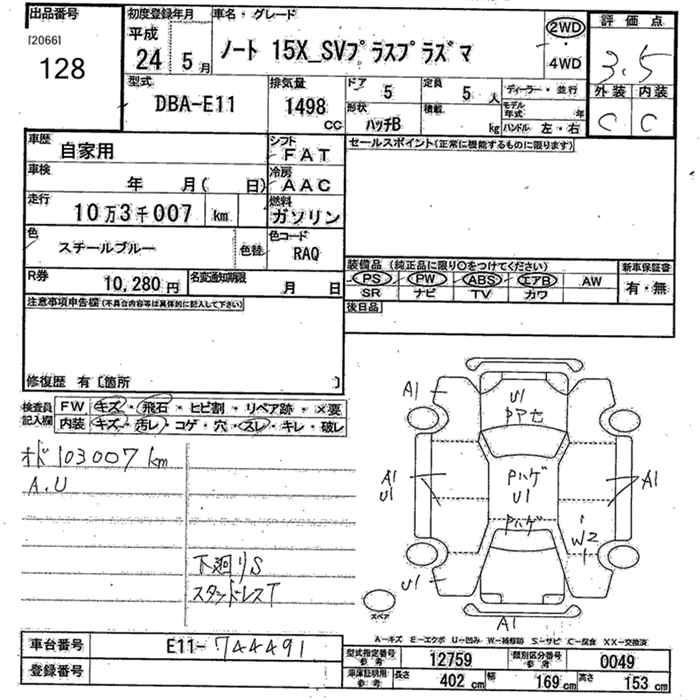 出品番号
[2066]
128
初度登録年月
平成
24年 5月
車名・グレード
ノート 15X_SVプラスプラズマ
2WD
・
4WD
評価点
3.5
外装 内装
C C
型式
DBA-E11
排気量
1498
CC
ドア 5
定員 5 人
形状
ハッチB
積載
kg
ディーラー・並行
モデル年式 年
ハンドル 左・右
車歴
自家用
シフト
FAT
車検
年 月( 日)
冷房
AAC
走行
10万3千007 km
燃料
ガソリン
色
スチールブルー
色替
色コード
RAQ
R券
10,280円
名変通知期限
月 日
セールスポイント(正常に機能するものに限ります)
装備品 (純正品に限り○をつけてください)
PS PW ABS エアB AW
SR ナビ TV カワ
新車保証書
有・無
後日品
注意事項申告欄(不具合内容等は具体的に記入して下さい)
修復歴 有〔箇所 〕
検査員
記入欄
FW キズ・飛石・ヒビ割・リペア跡・×要
内装 キズ・汚レ・コゲ・穴・スレ・キレ・破レ
オド103007km
A.U
下廻りS
スタッドレスT
A1
U1
PPセ
A1
U1
Pハゲ
U1
A1
Pハゲ
W2
U1
A1
スペア
A-キズ E-エクボ U-凹み W-補修跡 S-サビ C-腐食 XX-交換済
車台番号 E11-744491
登録番号
型式指定番号
参考
12759
類別区分番号
参考
0049
車庫証明用
参考
長さ 402 cm
幅 169 cm
高さ 153 cm